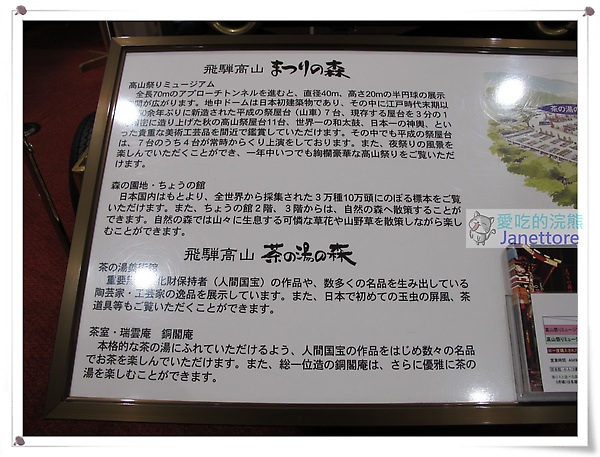 飛騨高山 まつりの森
高山祭りミュージアム
全長70mのアプローチトンネルを進むと、直径40m、高さ20mの半円球の展示
間が広がります。地中ドームは日本初建築物であり、その中に江戸時代末期以
0余年ぶりに新造された平成の祭屋台（山車）7台、現存する屋台を3分の1
密に造り上げた秋の高山祭屋台11台、世界一の和太鼓、日本一の神輿、とい
った貴重な美術工芸品を間近で鑑賞していただけます。その中でも平成の祭屋台
は、7台のうち4台が常時からくり上演をしております。また、夜祭りの風景を
楽しんでいただくことができ、一年中いつでも絢爛豪華な高山祭りをご覧いただ
けます。
森の園地・ちょうの館
日本国内はもとより、全世界から採集された3万種10万頭にのぼる標本をご覧
いただけます。また、ちょうの館2階、3階からは、自然の森へ散策することがで
きます。自然の森では山々に生息する可憐な草花や山野草を散策しながら楽し
むことができます。
飛騨高山 茶の湯の森
茶の湯美術館
重要 化財保持者（人間国宝）の作品や、数多くの名品を生み出している
陶芸家・工芸家の逸品を展示しています。また、日本で初めての玉虫の屏風、茶
道具等もご覧いただくことができます。
茶室・瑞雲庵 銅閣庵
本格的な茶の湯にふれていただけるよう、人間国宝の作品をはじめ数々の名品
でお茶を楽しんでいただけます。また、総一位造の銅閣庵は、さらに優雅に茶の
湯を楽しむことができます。
茶の湯の
愛吃的浣熊
Janettore